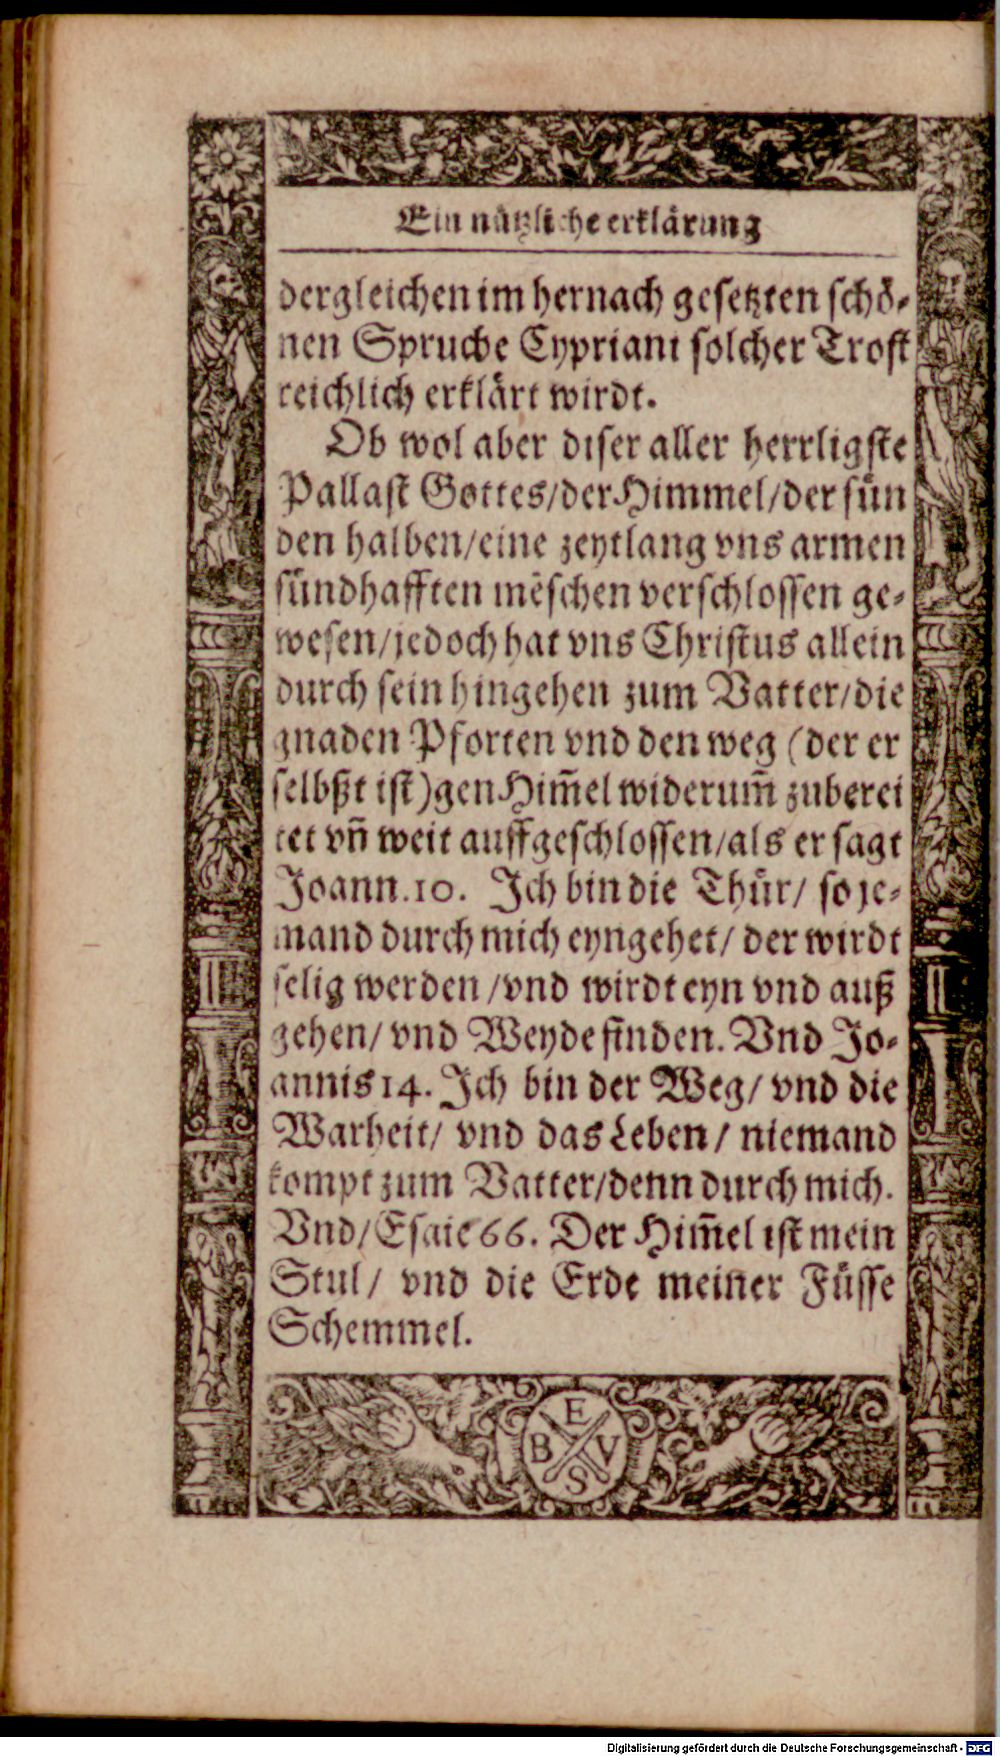 Ein nützliche erklärung
dergleichen im hernach gesetzten schö-
nen Spruche Cypriani solcher Trost
reichlich erklärt wirdt.
Ob wol aber diser aller herrligste
Pallast Gottes/der Himmel/der sün
den halben/eine zeytlang vns armen
sündhafften mẽschen verschlossen ge-
wesen/jedoch hat vns Christus allein
durch sein hingehen zum Vatter/die
gnaden Pforten vnd den weg (der er
selbßt ist)gen Him̃el widerum̃ zuberei
tet vñ weit auffgeschlossen/als er sagt
Joann.10. Ich bin die Thür/ so je-
mand durch mich eyngehet/ der wirdt
selig werden/vnd wirdt eyn vnd auß
gehen/ vnd Weyde finden. Vnd Jo-
annis 14. Ich bin der Weg/ vnd die
Warheit/ vnd das Leben/ niemand
kompt zum Vatter/denn durch mich.
Vnd/Esaie 66. Der Him̃el ist mein
Stul/ vnd die Erde meiner Füsse
Schemmel.
E
B V
S
Digitalisierung gefördert durch die Deutsche Forschungsgemeinschaft - DFG